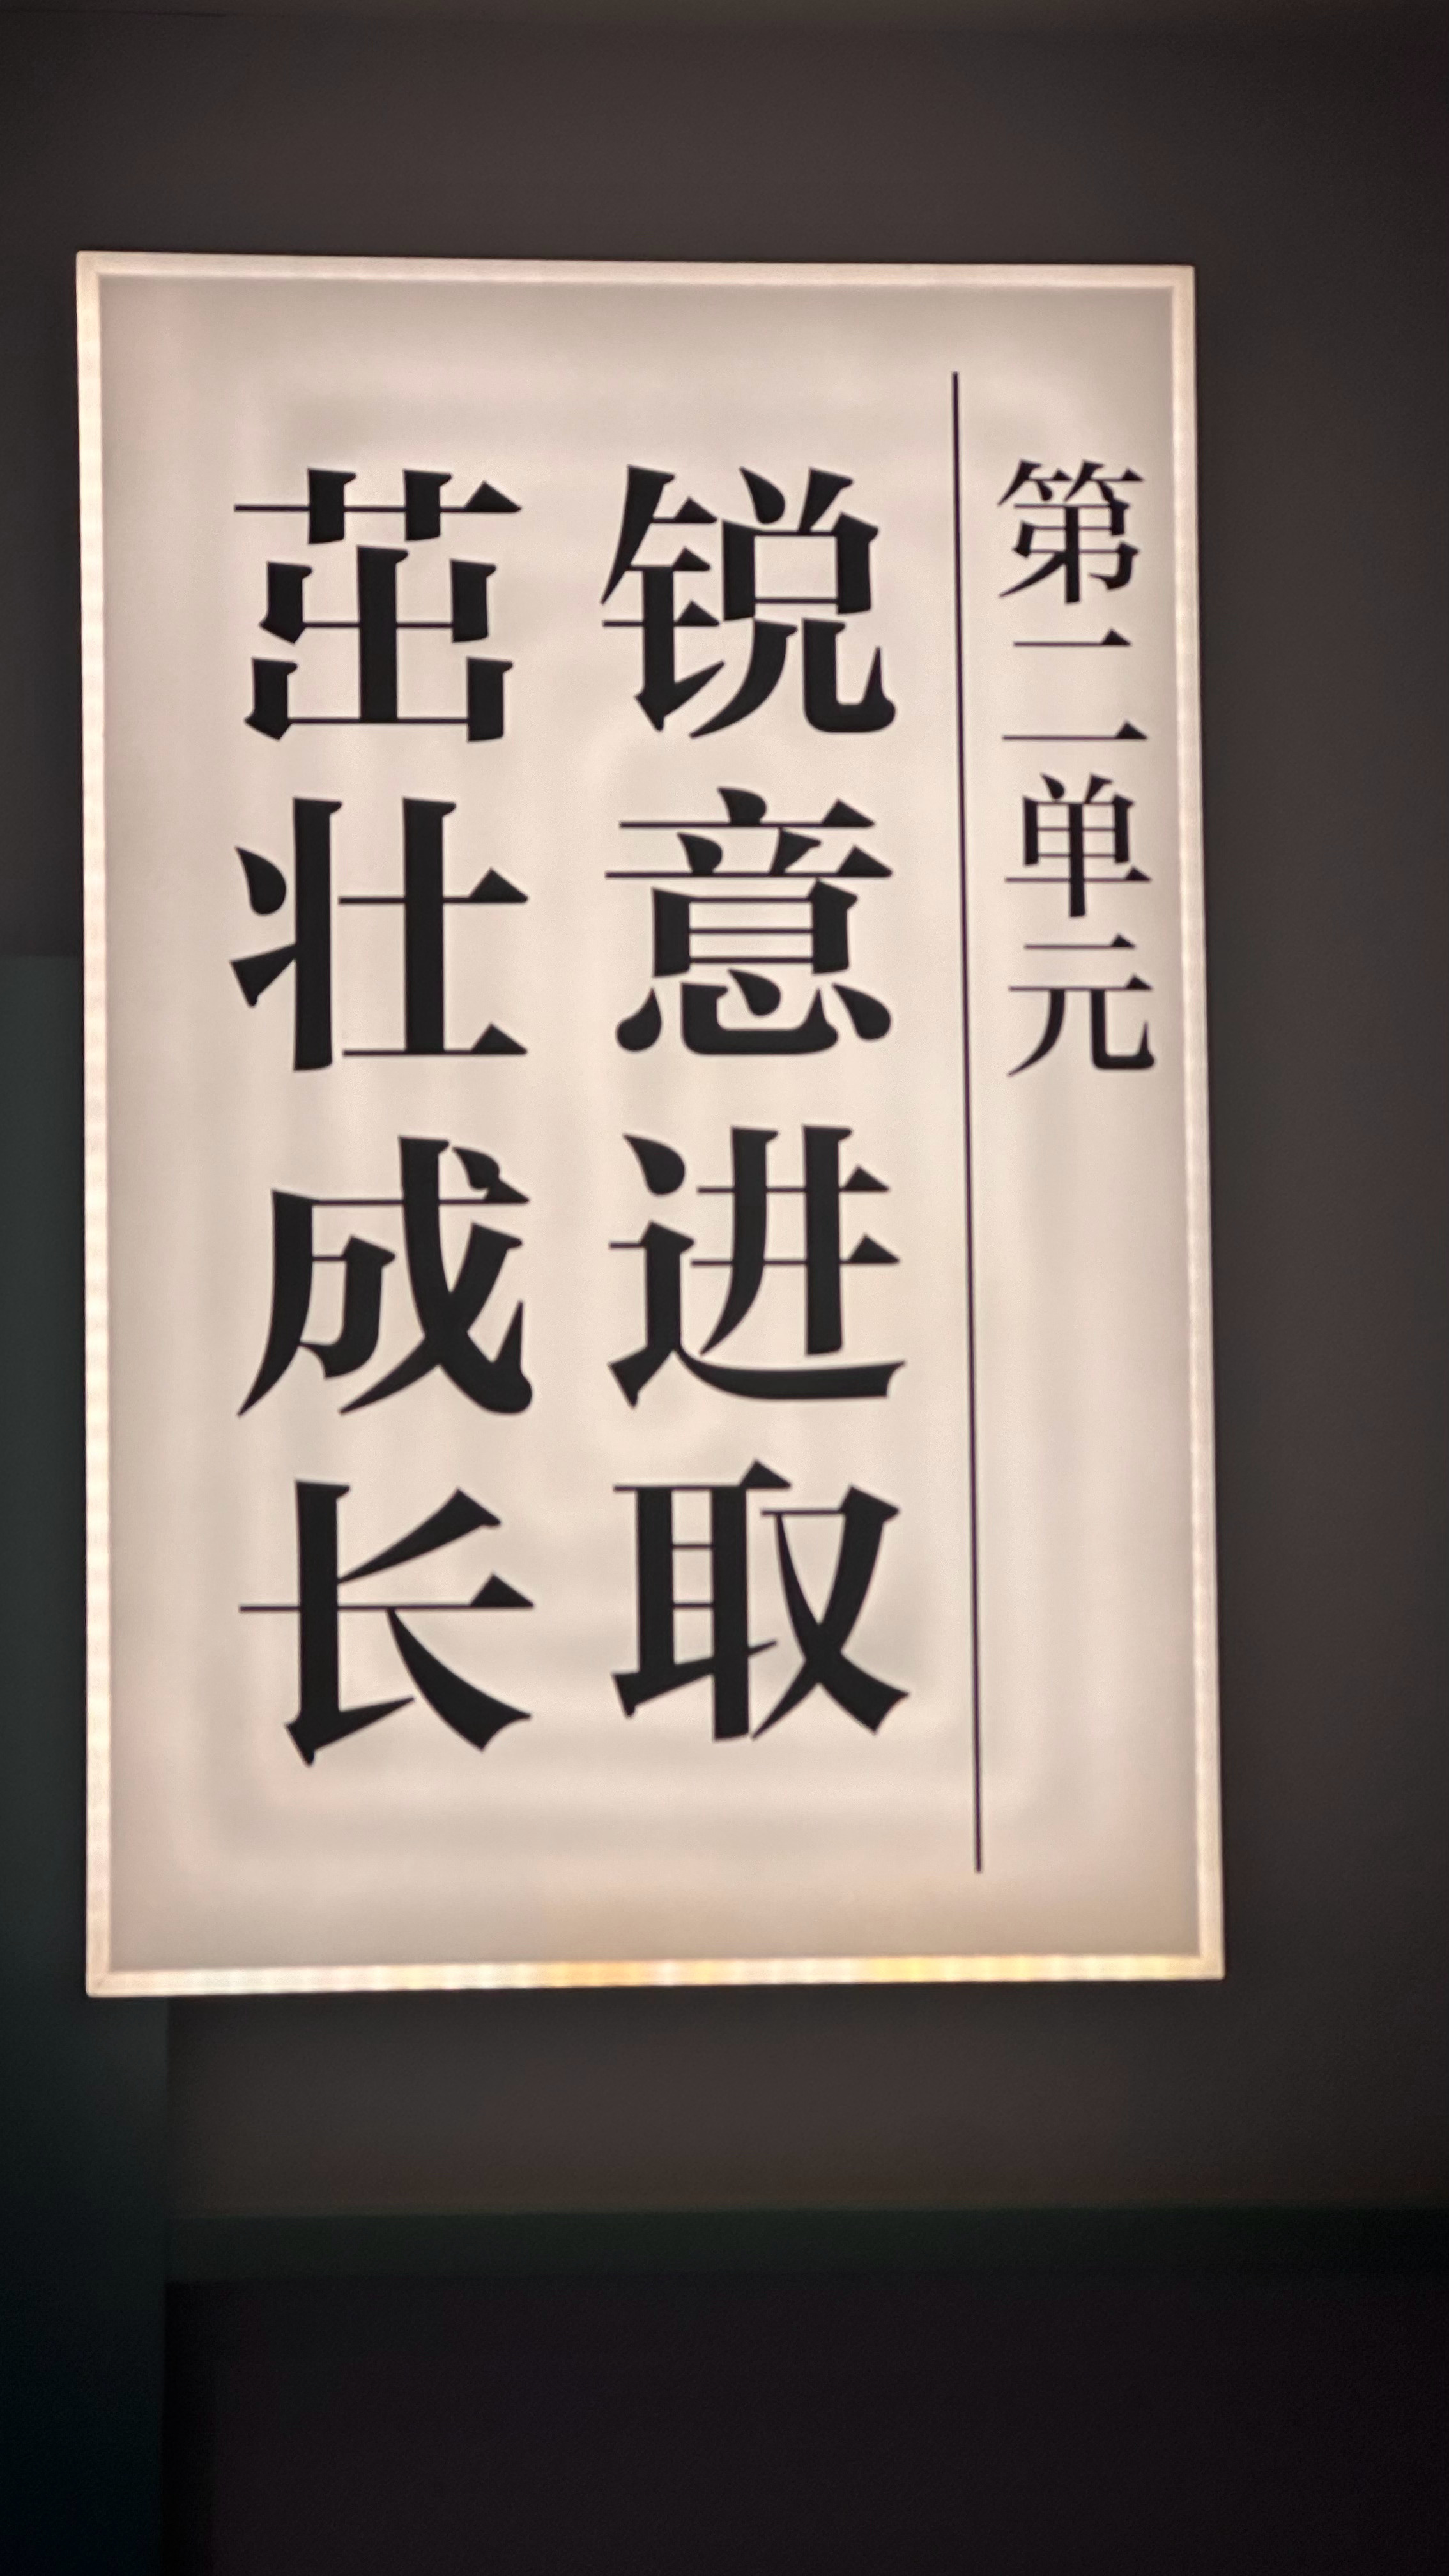 第二单元
锐意进取
茁壮成长